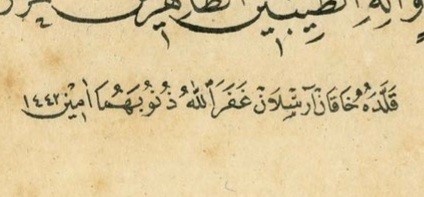 وآله الطيبين الطاهرين
قَلَّدَهُ خَاقَانْ آرْسِلَانْ غَفَرَ اللّٰهُ ذُنُوبَهُمَا اٰمِيْن ١٤٤٢